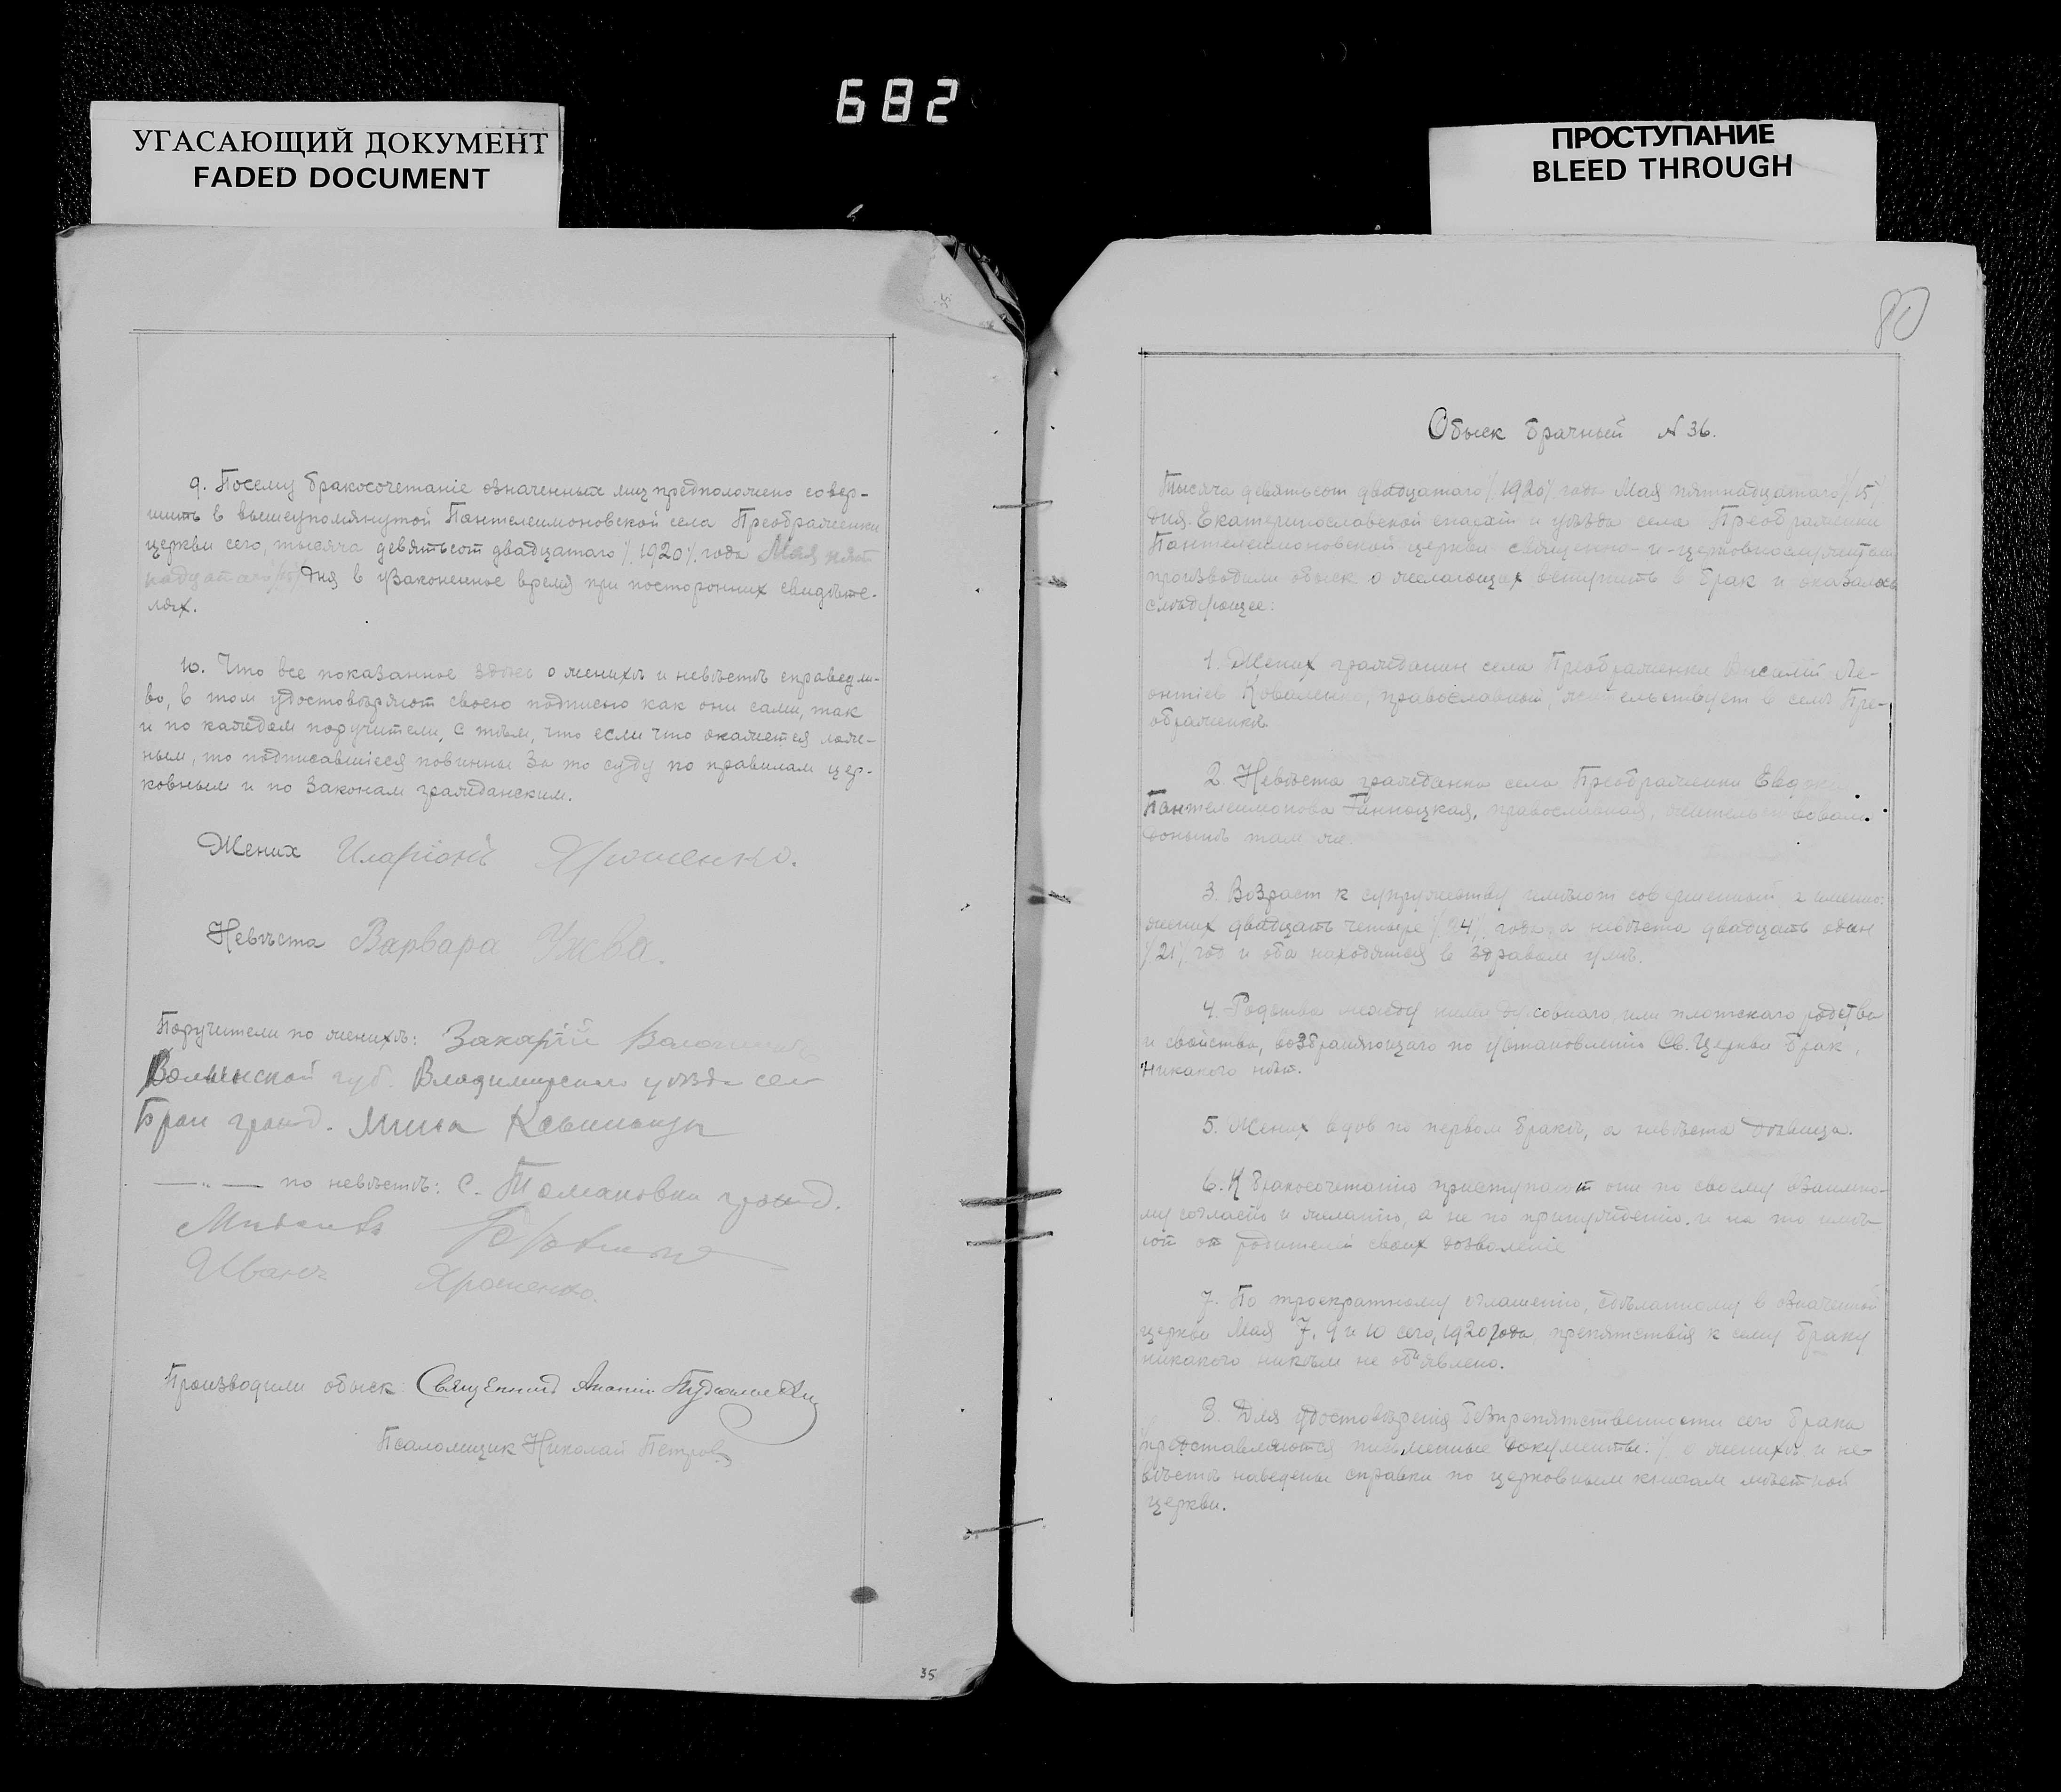 682
УГАСАЮЩИЙ ДОКУМЕНТ
FADED DOCUMENT
9. Посему бракосочетаніе означенных лиц предположено совер-
шить в вышеупомянутой Пантелеимоновской села Преображенки
церкви сего, тысяча девятьсот двадцатаго /1920/ года Мая пят
надцатаго /15/ дня в узаконенное время при посторонних свидѣте-
лях.
10. Что все показанное здѣсь о женихѣ и невѣстѣ справедли-
во, в том удостовѣряют своею подписью как они сами, так
и по каждом поручители, с тѣм, что если что окажется лож-
ным, то подписавшіеся повинны за то суду по правилам цер-
ковным и по законам гражданским.
Жених Иларіонъ Ярошенко.
Невѣста Варвара
Поручители по женихѣ: Захарій
Волынской губ. Владимирскаго уѣзда села
гражд. Мина
—„— по невѣстѣ: с. Томаковки гражд.
Иванъ Ярошенко.
Производили обыск: Священник
Псаломщик Николай Петров
35
ПРОСТУПАНИЕ
BLEED THROUGH
80
Обыск брачный № 36.
Тысяча девятьсот двадцатаго /1920/ года Мая пятнадцатаго /15/
дня Екатеринославской епархіи и уѣзда села Преображенки
Пантелеимоновской церкви священно-и-церковнослужители
производили обыск о желающих вступить в брак и оказалось
слѣдующее:
1. Жених гражданин села Преображенки Василій Ле-
онтіев Коваленко, православный, жительствует в селѣ Пре-
ображенкѣ
2. Невѣста гражданка села Преображенки
Пантелеимонова православная, жительствовала
донынѣ там же.
3. Возраст к супружеству имѣют совершенный, а именно:
жених двадцать четыре /24/ года, а невѣста двадцать один
/21/ год и оба находятся в здравом умѣ.
4. Родства между ними духовнаго или плотскаго родства
и свойства, возбраняющаго по установленію Св. Церкви брак,
никакого нѣт.
5. Жених вдов по первом бракѣ, а невѣста дѣвица.
6. К бракосочетанію приступают они по своему взаимно-
му согласію и желанію, а не по принужденію, и на то имѣ-
ют от родителей своих дозволеніе
7. По троекратному оглашенію, сдѣланному в означенной
церкви Мая 7, 9 и 10 сего, 1920 года, препятствія к сему браку
никакого никѣм не объявлено.
8. Для удостовѣренія безпрепятственности сего брака
представляются письменные документы: / о женихѣ и не-
вѣстѣ наведены справки по церковным книгам мѣстной
церкви.